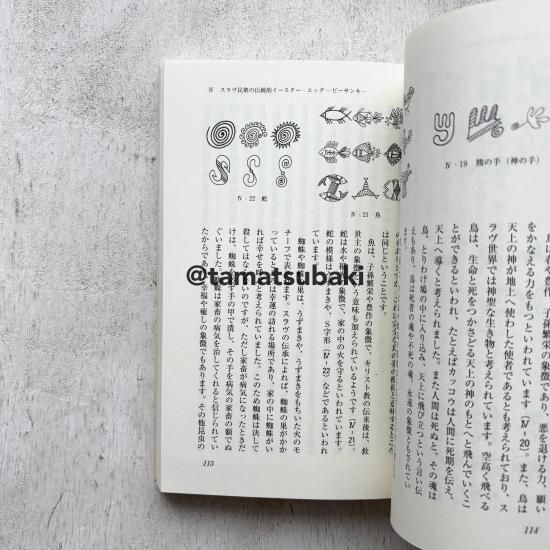 Ⅳ・19 熊の手（神の手）
をかなえる力をもつといわれています（Ⅳ-20）。また、鳥は
天上の神が地上へ使わした使者であるとも考えられており、ス
ラヴ世界では神聖な生き物と考えられています。空高く飛べる
鳥は、生命と死をつかさどる天上の神のもとへと飛んでいくこ
とができるといわれ、たとえばカッコウは人間に死期を伝え、
天上へ導くと考えられました。また人間は死ぬと、その魂は
鳥、とりわけ鳩の中に入り込み、天上に飛び立つという言い伝
えもあり、鳥は死者の魂や不死の魂、永遠の象徴ともされてい
ます。
114
Ⅳ スラヴ民衆の伝統的イースター・エッグ―ピーサンキ―
Ⅳ・21 魚
Ⅳ・22 蛇
は同じということです。
魚は、子孫繁栄や豊作の象徴で、キリスト教の伝来後は、救
世主の象徴という意味も加えられているようです（Ⅳ-21）。
蛇は水や の象徴で、家の中の火を守るといわれています。
蛇の模様は まきや、S字形（Ⅳ-22）などであるといわれ
ています。
蜘蛛や蜘蛛の巣は、うずまきや、うずまきをもちいた火のモ
チーフで表 ます。スラヴの伝承によれば、蜘蛛の巣がかか
っていると は幸運の訪れる場所であり、家の中に蜘蛛がい
れば幸せを と考えられていました。このため蜘蛛は決して
殺してはな いのですが、ただし家畜が病気になったときだ
けは、蜘蛛を 手の甲で潰し、その手を病気の家畜の額でぬ
ぐいました 蛛は家畜の病気を治してくれると信じられてい
たからであ 幸福や癒しの象徴でもあります。その他昆虫の
115
@tamatsubaki